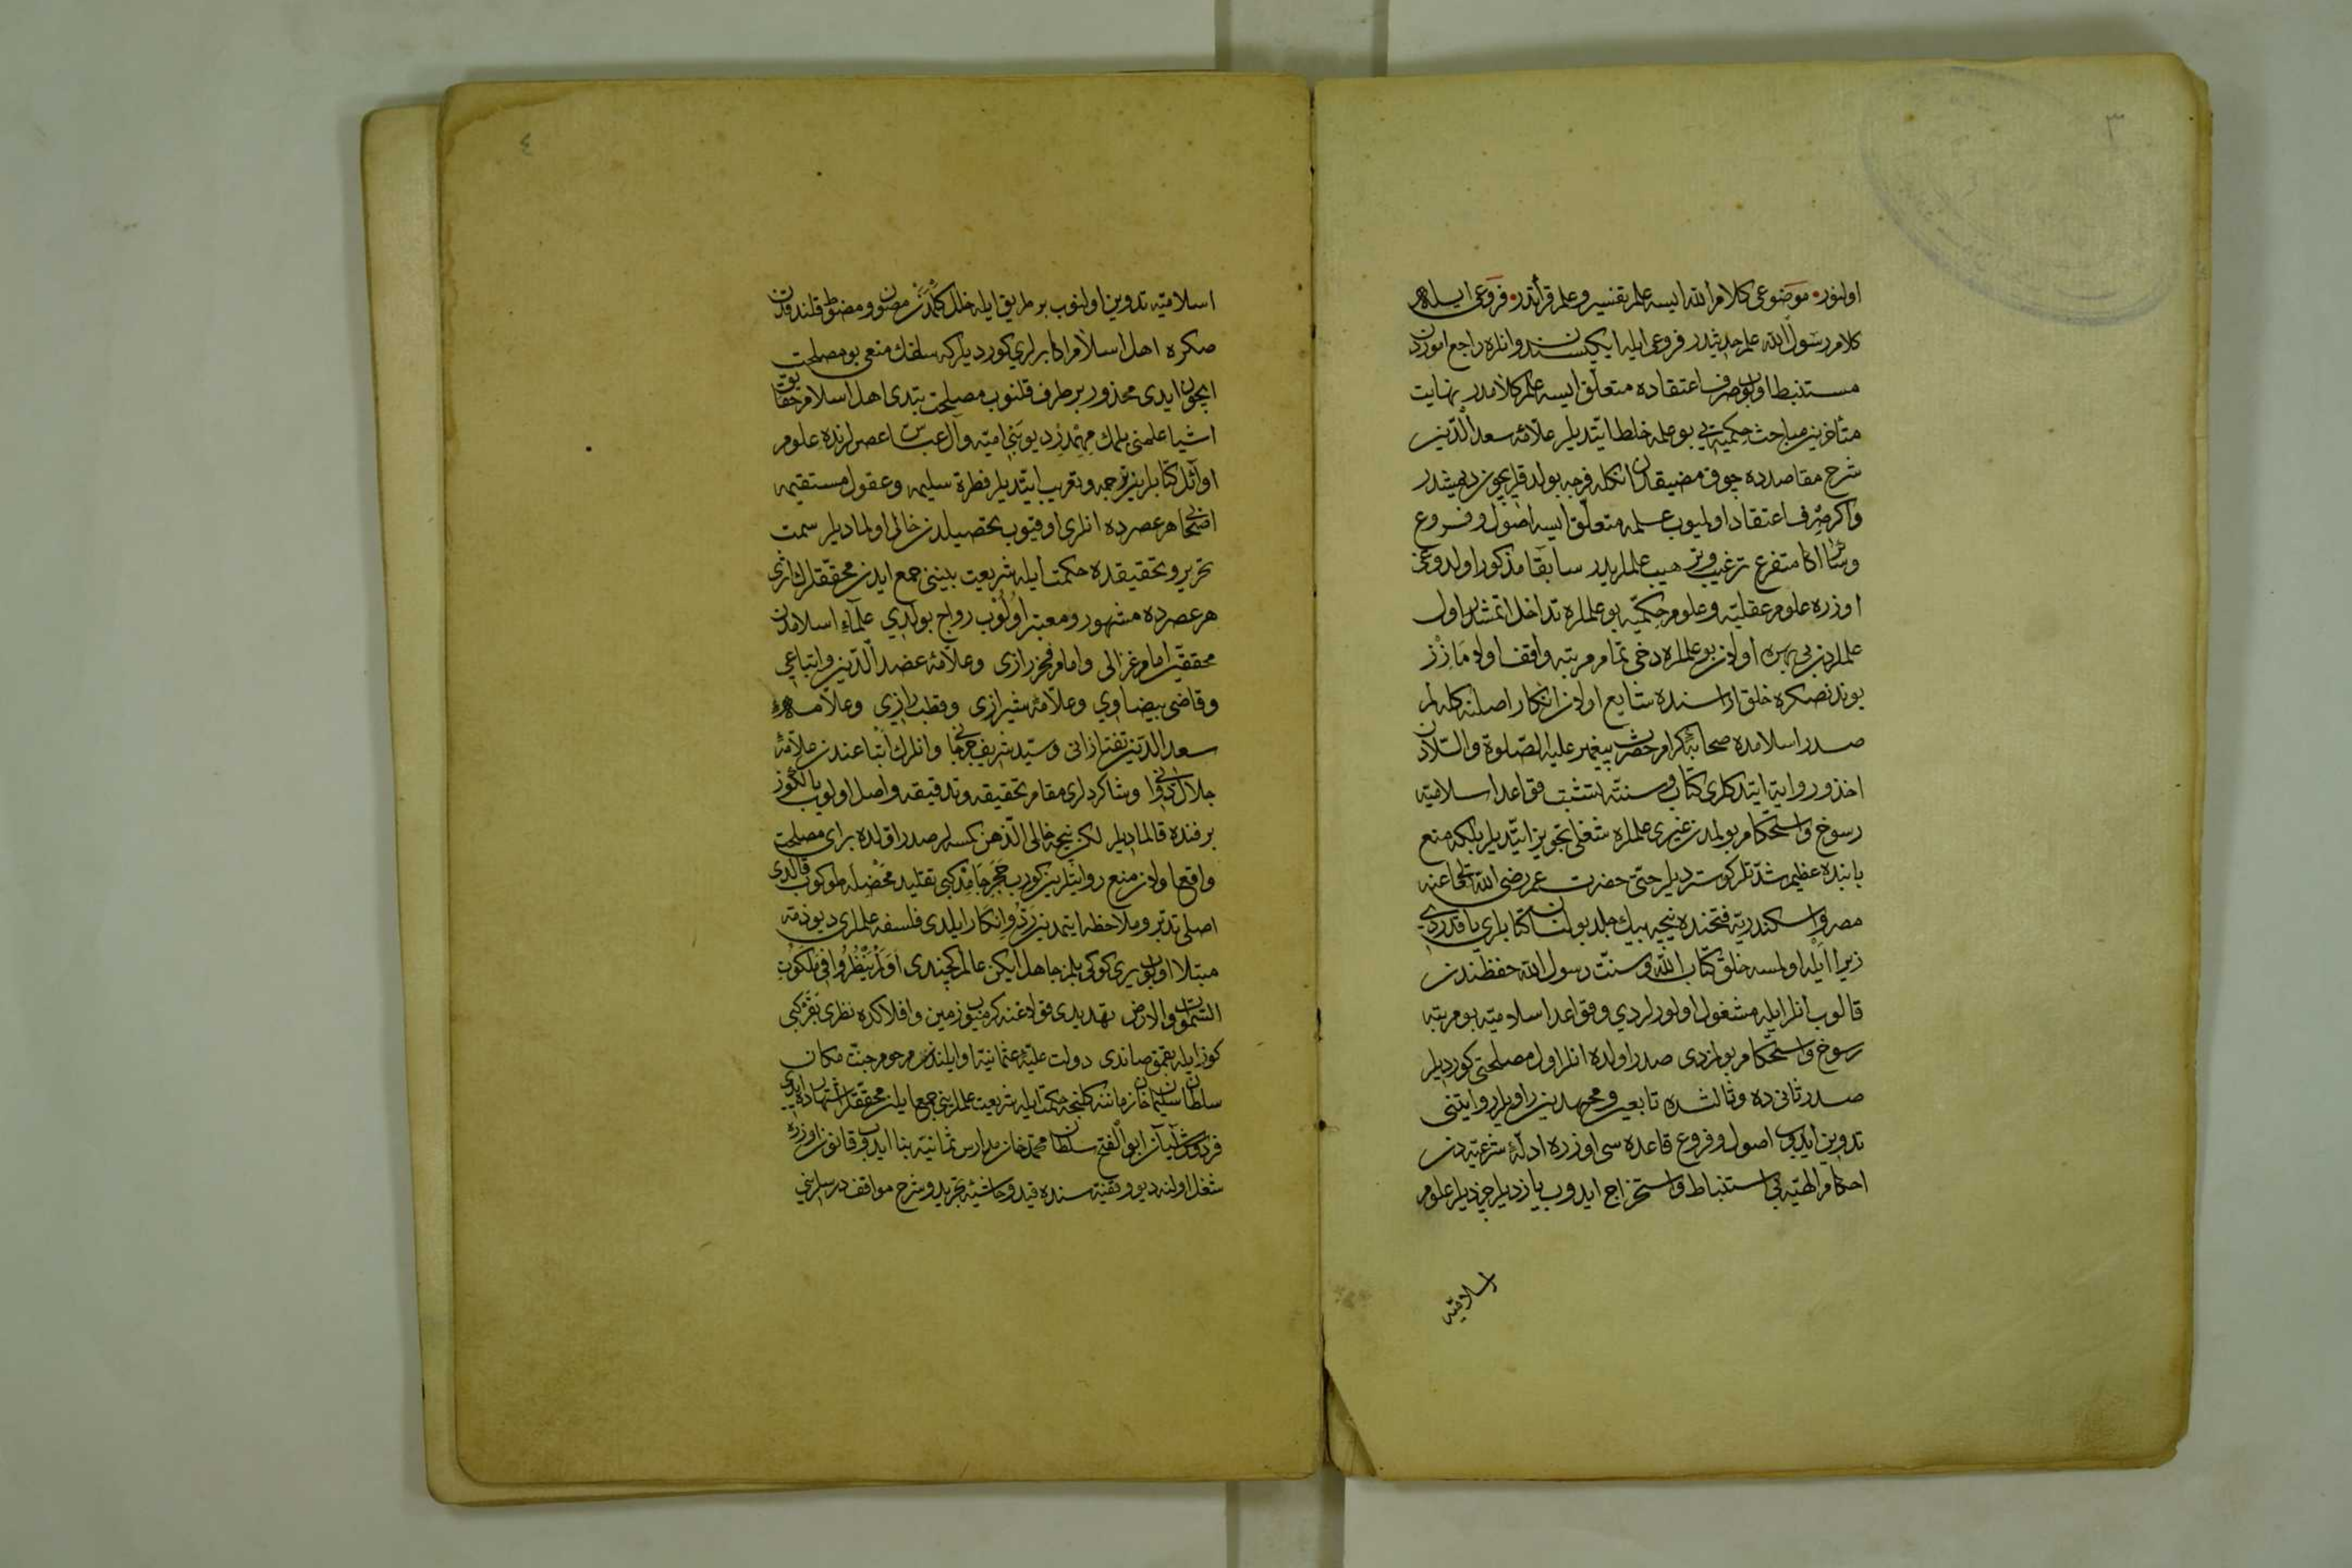 ٣
اولنور موضوعی کلام الله ایسه علم تفسیر و علم قرأتدر فروعی ایله
کلام رسول الله علم حدیثدر فروعی ایله ایکیسندن وانلره راجع اموردن
مستنبط اولوب صرف اعتقاده متعلق ایسه علم کلامدر نهایت
متأخرین مباحث حکمیه یی بو علمه خلط ایتدیلر علامه سعد الدین
شرح مقاصدده چوق مضیقدن انکله فرجه بولدق ایچون دیمیشدر
واکر صرف اعتقاد اولمیوب عمله متعلق ایسه اصول وفروع
اکا متفرع ترغیب وترهیب علملریدر سابقا مذکور اولدوغی
اوزره علوم عقلیه وعلوم حکمیه بو علملره تداخل اتمشدر اول
علملردن بی بهره اولان بو علملره دخی تمام مرتبه واقف اولامازز
بوندنصکره خلق اراسنده شایع اولان انکار اصلنه کلهلم
صدر اسلامده صحابهٔ کرام حضرت پیغمبر علیه الصلوة والسلامدن
اخذ وروایة ایتدکلری کتاب وسنته تشبث قواعد اسلامیه
رسوخ واستحکام بولمدن غیری علملره شغلی تجویز ایتمدیلر بلکه منع
بابنده عظیم شدتلر کوستردیلر حتی حضرت عمر رضی الله تعالی عنه
مصر واسکندریه فتحنده نیچه بیك جلد بولنان کتابلری یاقدردی
زیرا ایله اولمسه خلق کتاب الله وسنت رسول الله حفظندن
قالوب انلر ایله مشغول اولورلردی وقواعد اسلامیه بو مرتبه
رسوخ واستحکام بولمازدی صدر اولده انلر اول مصلحتی کوردیلر
صدر ثانی ده وثالثده تابعین ومجتهدین راویلر روایتنی
تدوین ایدوب اصول وفروع قاعده سی اوزره ادلهٔ شرعیه دن
احکام الهیه یی استنباط واستخراج ایدوب یازدیلر چزدیلر علوم
اسلامیه
٤
اسلامیه تدوین اولنوب بر طریق ایله خلل کلمدن مصون ومضبوط قلندقدن
صکره اهل اسلام اکابرلری کوردیلر که سلفك منعی بو مصلحت
ایچون ایدی محذور بر طرف قلنوب مصلحت بتدی اهل اسلام حقایق
اشیا علمنی بلمك مهمدر دیو بنی امیه وآل عباس عصرلرنده علوم
اوائل کتابلرین ترجمه وتعریب ایتدیلر فطرة سلیمه وعقول مستقیمه
اصحابی هر عصرده انلری اوقیوب تحصیلدن خالی اولمادیلر سمت
تحریر وتحقیقده حکمت ایله شریعت بیننی جمع ایدن محققلرك اثری
هر عصرده مشهور ومعتبر اولوب رواج بولدی علماء اسلامدن
محققین امام غزالی وامام فخر رازی وعلامهٔ عضد الدین واتباعی
وقاضی بیضاوی وعلامهٔ شیرازی وقطب رازی وعلامهٔ
سعد الدین تفتازانی وسید شریف جرجانی وانلرك اتباعندن علامهٔ
جلال دوانی وشاکردلری مقام تحقیقه وتدقیقه واصل اولوب یالکوز
بر فنده قالمادیلر لکن نیجه خالی الذهن کمسه لر صدر اولده برای مصلحت
واقع اولان منع روایتلرین کورب حجر جامد کبی تقلید محض ایله طوکوب قالدی
اصلی تدبر وملاحظه ایتمدین رد وانکار ایلدی فلسفه علملری دیو ذمه
مبتلا اولوب یری کوکی بلمز جاهل ایکن عالم کچندی اولم ینظروا فی ملکوت
السموات والارض تهدیدی قولاغنه کرمیوب زمین وافلاکده نظری بقر کبی
کوز ایله بقمق صاندی دولت علیهٔ عثمانیه اوایلندن مرحوم جنت مکان
سلطان سلیمان خان زماننه کلنجه حکمت ایله شریعت علملرینی جمع ایلین محققلر اشتهارده ایدی
ابو الفتح سلطان محمد خان مدارس ثمانیه بنا ایدوب قانون اوزره
شغل اولنه دیو وقفیه سنده قید وحاشیهٔ تجرید وشرح مواقف درسلرینی